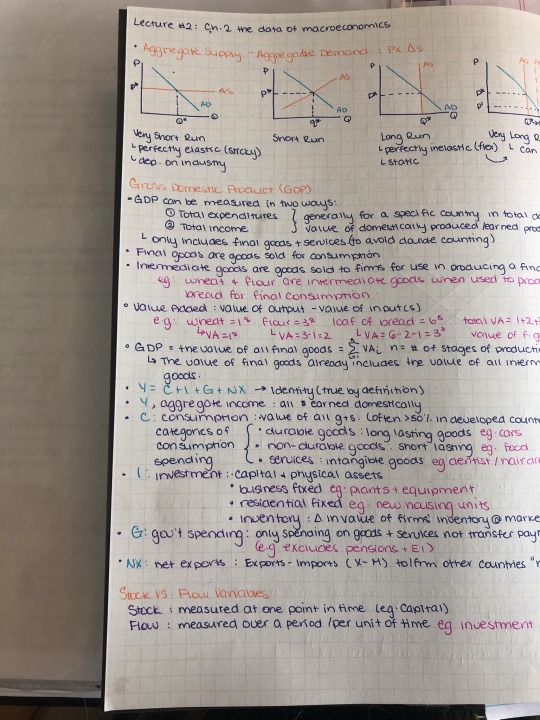 Lecture #2: Ch.2 the data of macroeconomics
• Aggregate Supply - Aggregate Demand : Px Δs
P P P P
AS
P* AS P* P* P*
P'
AD AD AD
Q* Q q* Q Q
Very Short Run Short Run Long Run Very Long R
↳ perfectly elastic (sticky) ↳ perfectly inelastic (flex) ↳ can
↳ dep. on industry ↳ static
Gross Domestic Product (GDP)
• GDP can be measured in two ways:
① Total expenditures } generally for a specific country in total do
② Total income value of domestically produced/earned prod
↳ only includes final goods + services (to avoid double counting)
• Final goods are goods sold for consumption
• Intermediate goods are goods sold to firms for use in producing a fina
eg: wheat + flour are intermediate goods when used to prod
bread for final consumption
• Value Added: value of output - value of input(s)
e.g: wheat = 1$ flour = 3$ loaf of bread = 6$ total VA = 1+2+
↳ VA=1$ ↳ VA=3-1=2 ↳ VA=6-2-1=3$ value of f.g
• GDP = the value of all final goods = Σ VAi, n = # of stages of producti
↳ The value of final goods already includes the value of all interm
goods.
• Y = C+I+G+NX → Identity (true by definition)
• Y, aggregate income: all $ earned domestically
• C: consumption: value of all g+s. (often >50% in developed count
categories of { • durable goods: long lasting goods eg. cars
consumption • non-durable goods: short lasting eg. food
spending • services: intangible goods eg dentist/haircu
• I: investment: capital + physical assets
• business fixed eg. plants + equipment
• residential fixed eg. new housing units
• inventory: Δ in value of firms' inventory @ marke
• G: gov't spending: only spending on goods + services not transfer pay
(e.g excludes pensions + EI)
• NX: net exports: Exports - Imports (X-M) to/frm other countries
Stock vs. Flow Variables
Stock : measured at one point in time (eg. Capital)
Flow : measured over a period /per unit of time eg investment